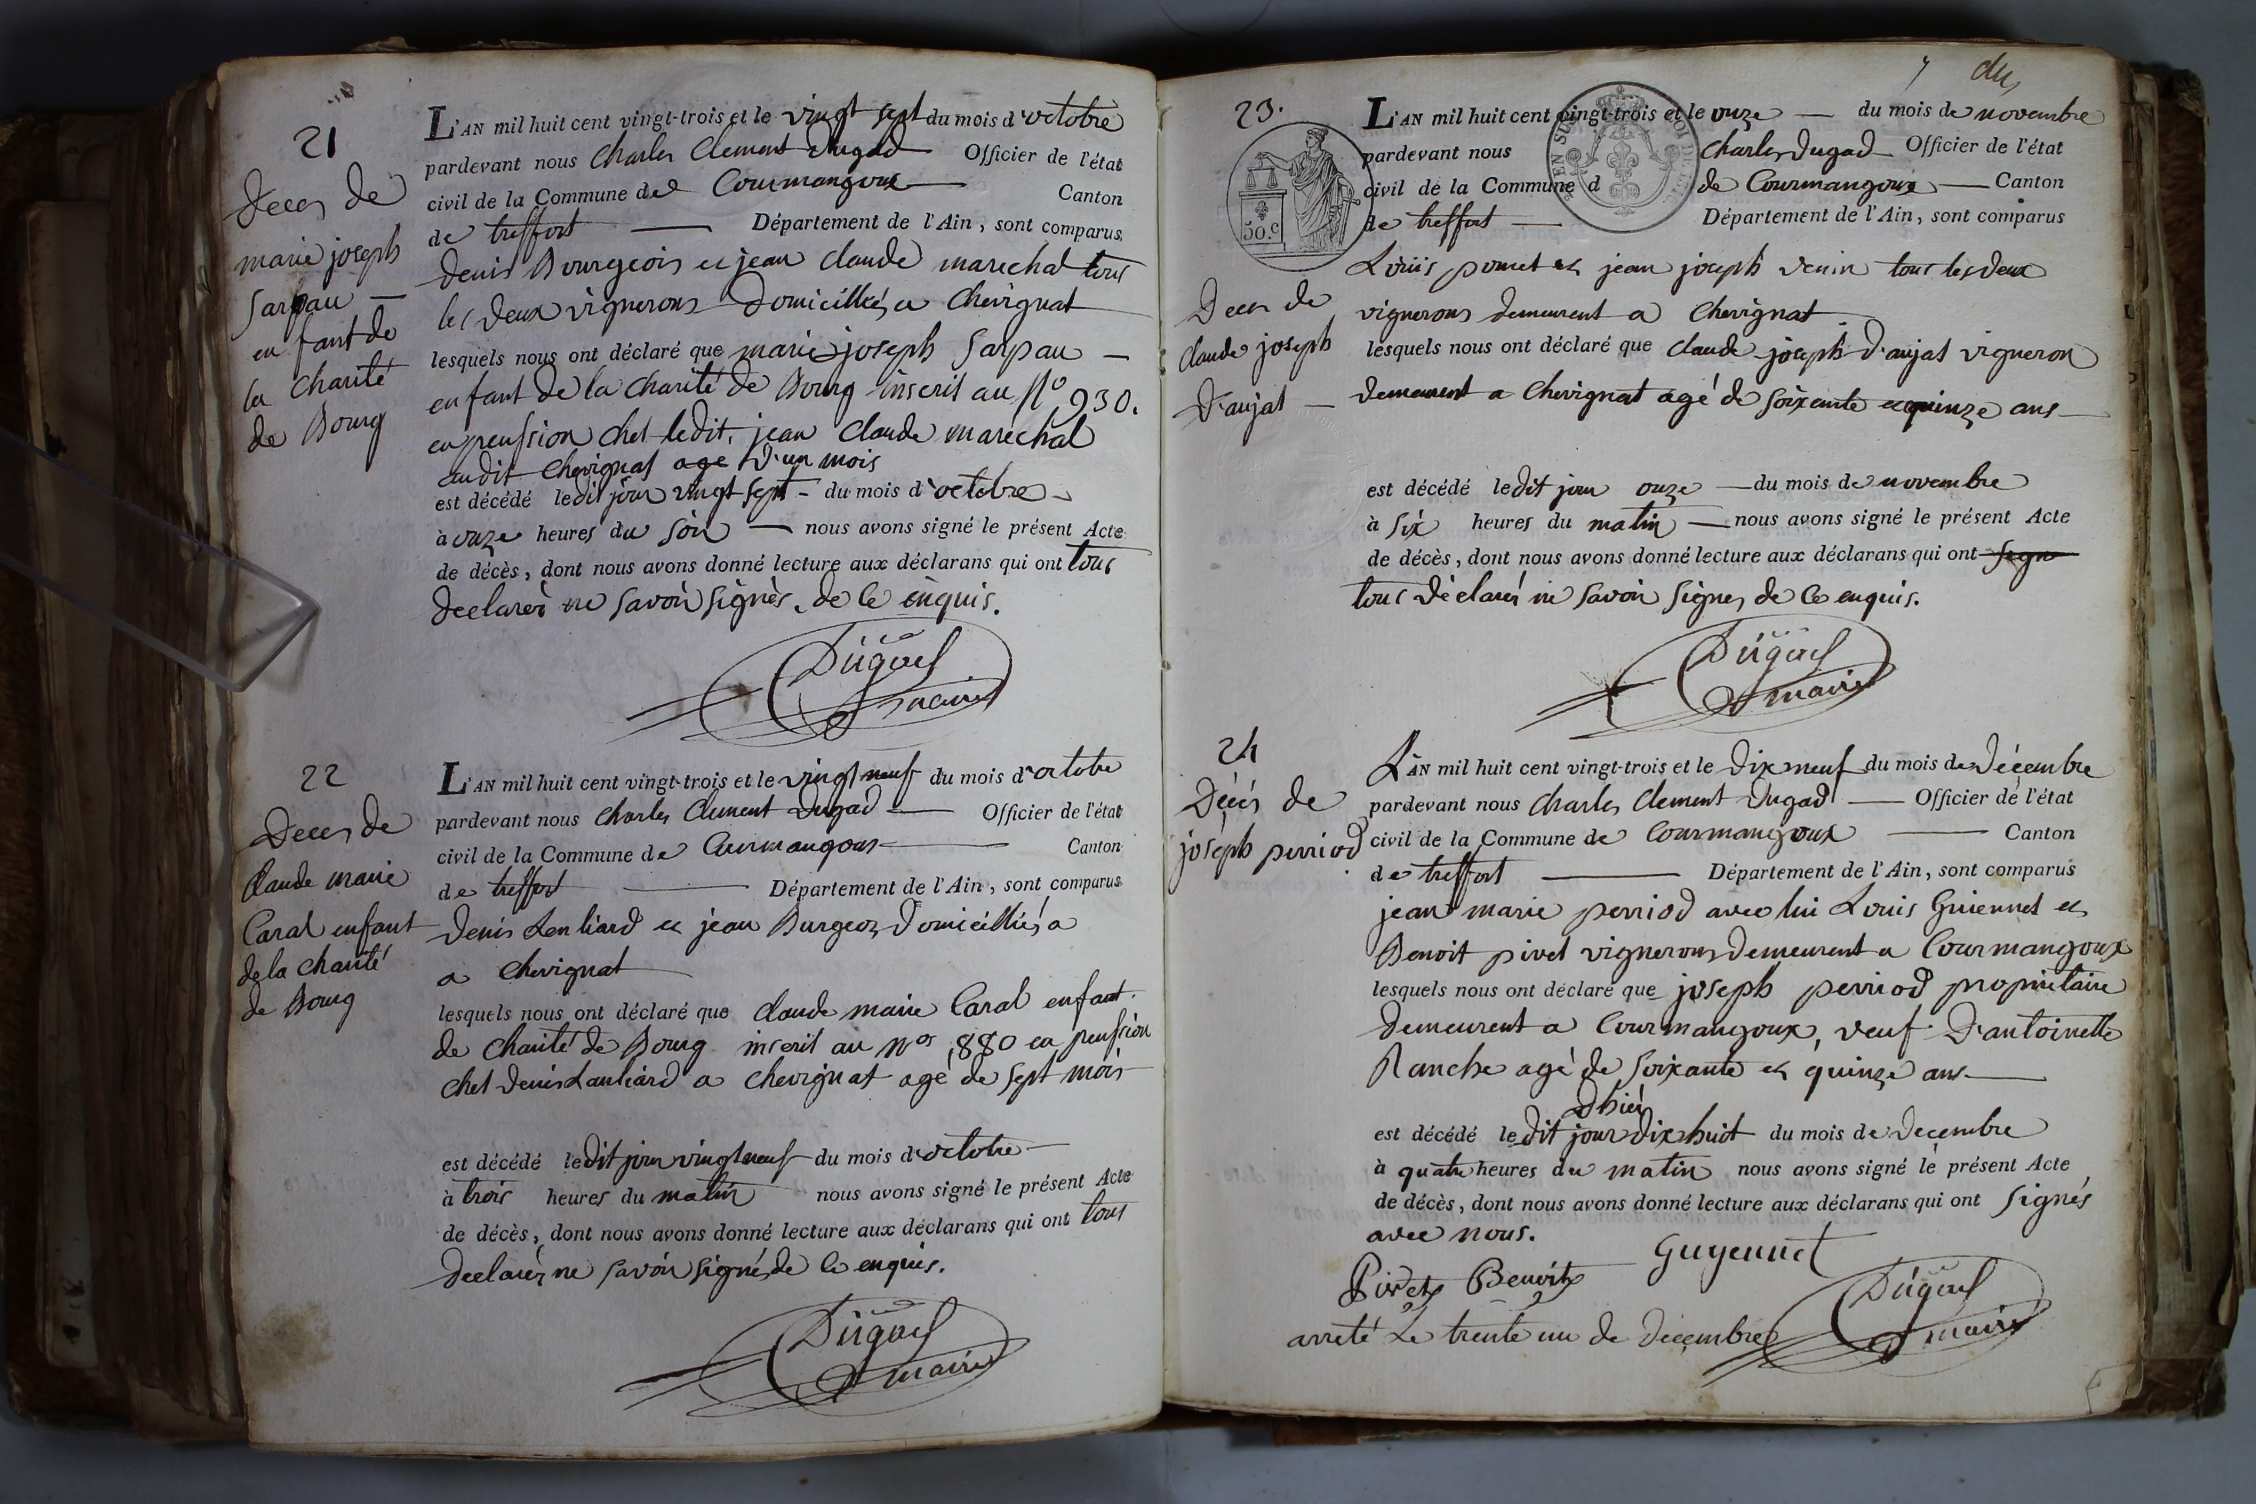 21
Deces de
marie joseph
Sarpau —
enfant de
la Charité
de Bourg
L'AN mil huit cent vingt-trois et le vingt sept du mois d'octobre
pardevant nous Charles Clement Dugad Officier de l'état
civil de la Commune de Courmangoux — Canton
de treffort — Département de l'Ain, sont comparus
denis Bourgeois et jean claude marechal tous
les deux vignerons domicilliés a Chevignat
lesquels nous ont déclaré que marie joseph Sarpau —
enfant de la charité de Bourg inscrit au N° 930.
en pension chet ledit jean claude marechal
audit chevignat age d'un mois
est décédé ledit jour vingt sept - du mois d'octobre -
à onze heures du Soir — nous avons signé le présent Acte
de décès, dont nous avons donné lecture aux déclarans qui ont tous
declarés ne savoir signés de ce enquis.
Dugad
maire
22
Deces de
Claude marie
Caral enfant
de la charité
de Bourg
L'AN mil huit cent vingt-trois et le vingt neuf du mois d'octobre
pardevant nous Charles Clement Dugad — Officier de l'état
civil de la Commune de Courmangoux — Canton
de treffort — Département de l'Ain, sont comparus
denis Lenliard et jean Burgeos domicilliés a
a chevignat
lesquels nous ont déclaré que claude marie Caral enfant
de charité de Bourg inscrit au Nos 880 en pension
chet denis Lanliard a chevignat agé de sept mois
est décédé ledit jour vingt neuf du mois d'octobre -
à trois heures du matin nous avons signé le présent Acte
de décès, dont nous avons donné lecture aux déclarans qui ont tous
declarés ne savoir signés de ce enquis.
Dugad
maire
7
23.
50.c
Deces de
claude joseph
d'aujat —
L'AN mil huit cent vingt-trois et le onze — du mois de novembre
pardevant nous Charles Dugad Officier de l'état
civil de la Commune d de Courmangoux — Canton
de treffort — Département de l'Ain, sont comparus
Louis pomet et jean joseph venin tous les deux
vignerons demeurent a Chevignat
lesquels nous ont déclaré que claude joseph d'aujat vigneron
demeurent a chevignat agé de soixante et quinze ans —
est décédé ledit jour onze — du mois de novembre
à six heures du matin — nous avons signé le présent Acte
de décès, dont nous avons donné lecture aux déclarans qui ont signe
tous déclarés ne savoir signer de ce enquis.
Dugad
maire
24
Décés de
joseph perriod
L'AN mil huit cent vingt-trois et le dix neuf du mois de Décembre
pardevant nous Charles Clement Dugad — Officier de l'état
civil de la Commune de Courmangoux — Canton
de treffort — Département de l'Ain, sont comparus
jean marie perriod avec lui Louis Guiennet et
Benoit pivet vignerons demeurent a Courmangoux
lesquels nous ont déclaré que joseph perriod proprietaire
demeurent a Courmangoux, veuf d'antoinette
Ranche agé de soixante et quinze ans —
d'hier
est décédé ledit jour dix huit du mois de Decembre
à quatre heures du matin nous avons signé le présent Acte
de décès, dont nous avons donné lecture aux déclarans qui ont Signés
avec nous.
Pivet Benoit Guyennet
Dugad
maire
arreté Le trente un de Decembre